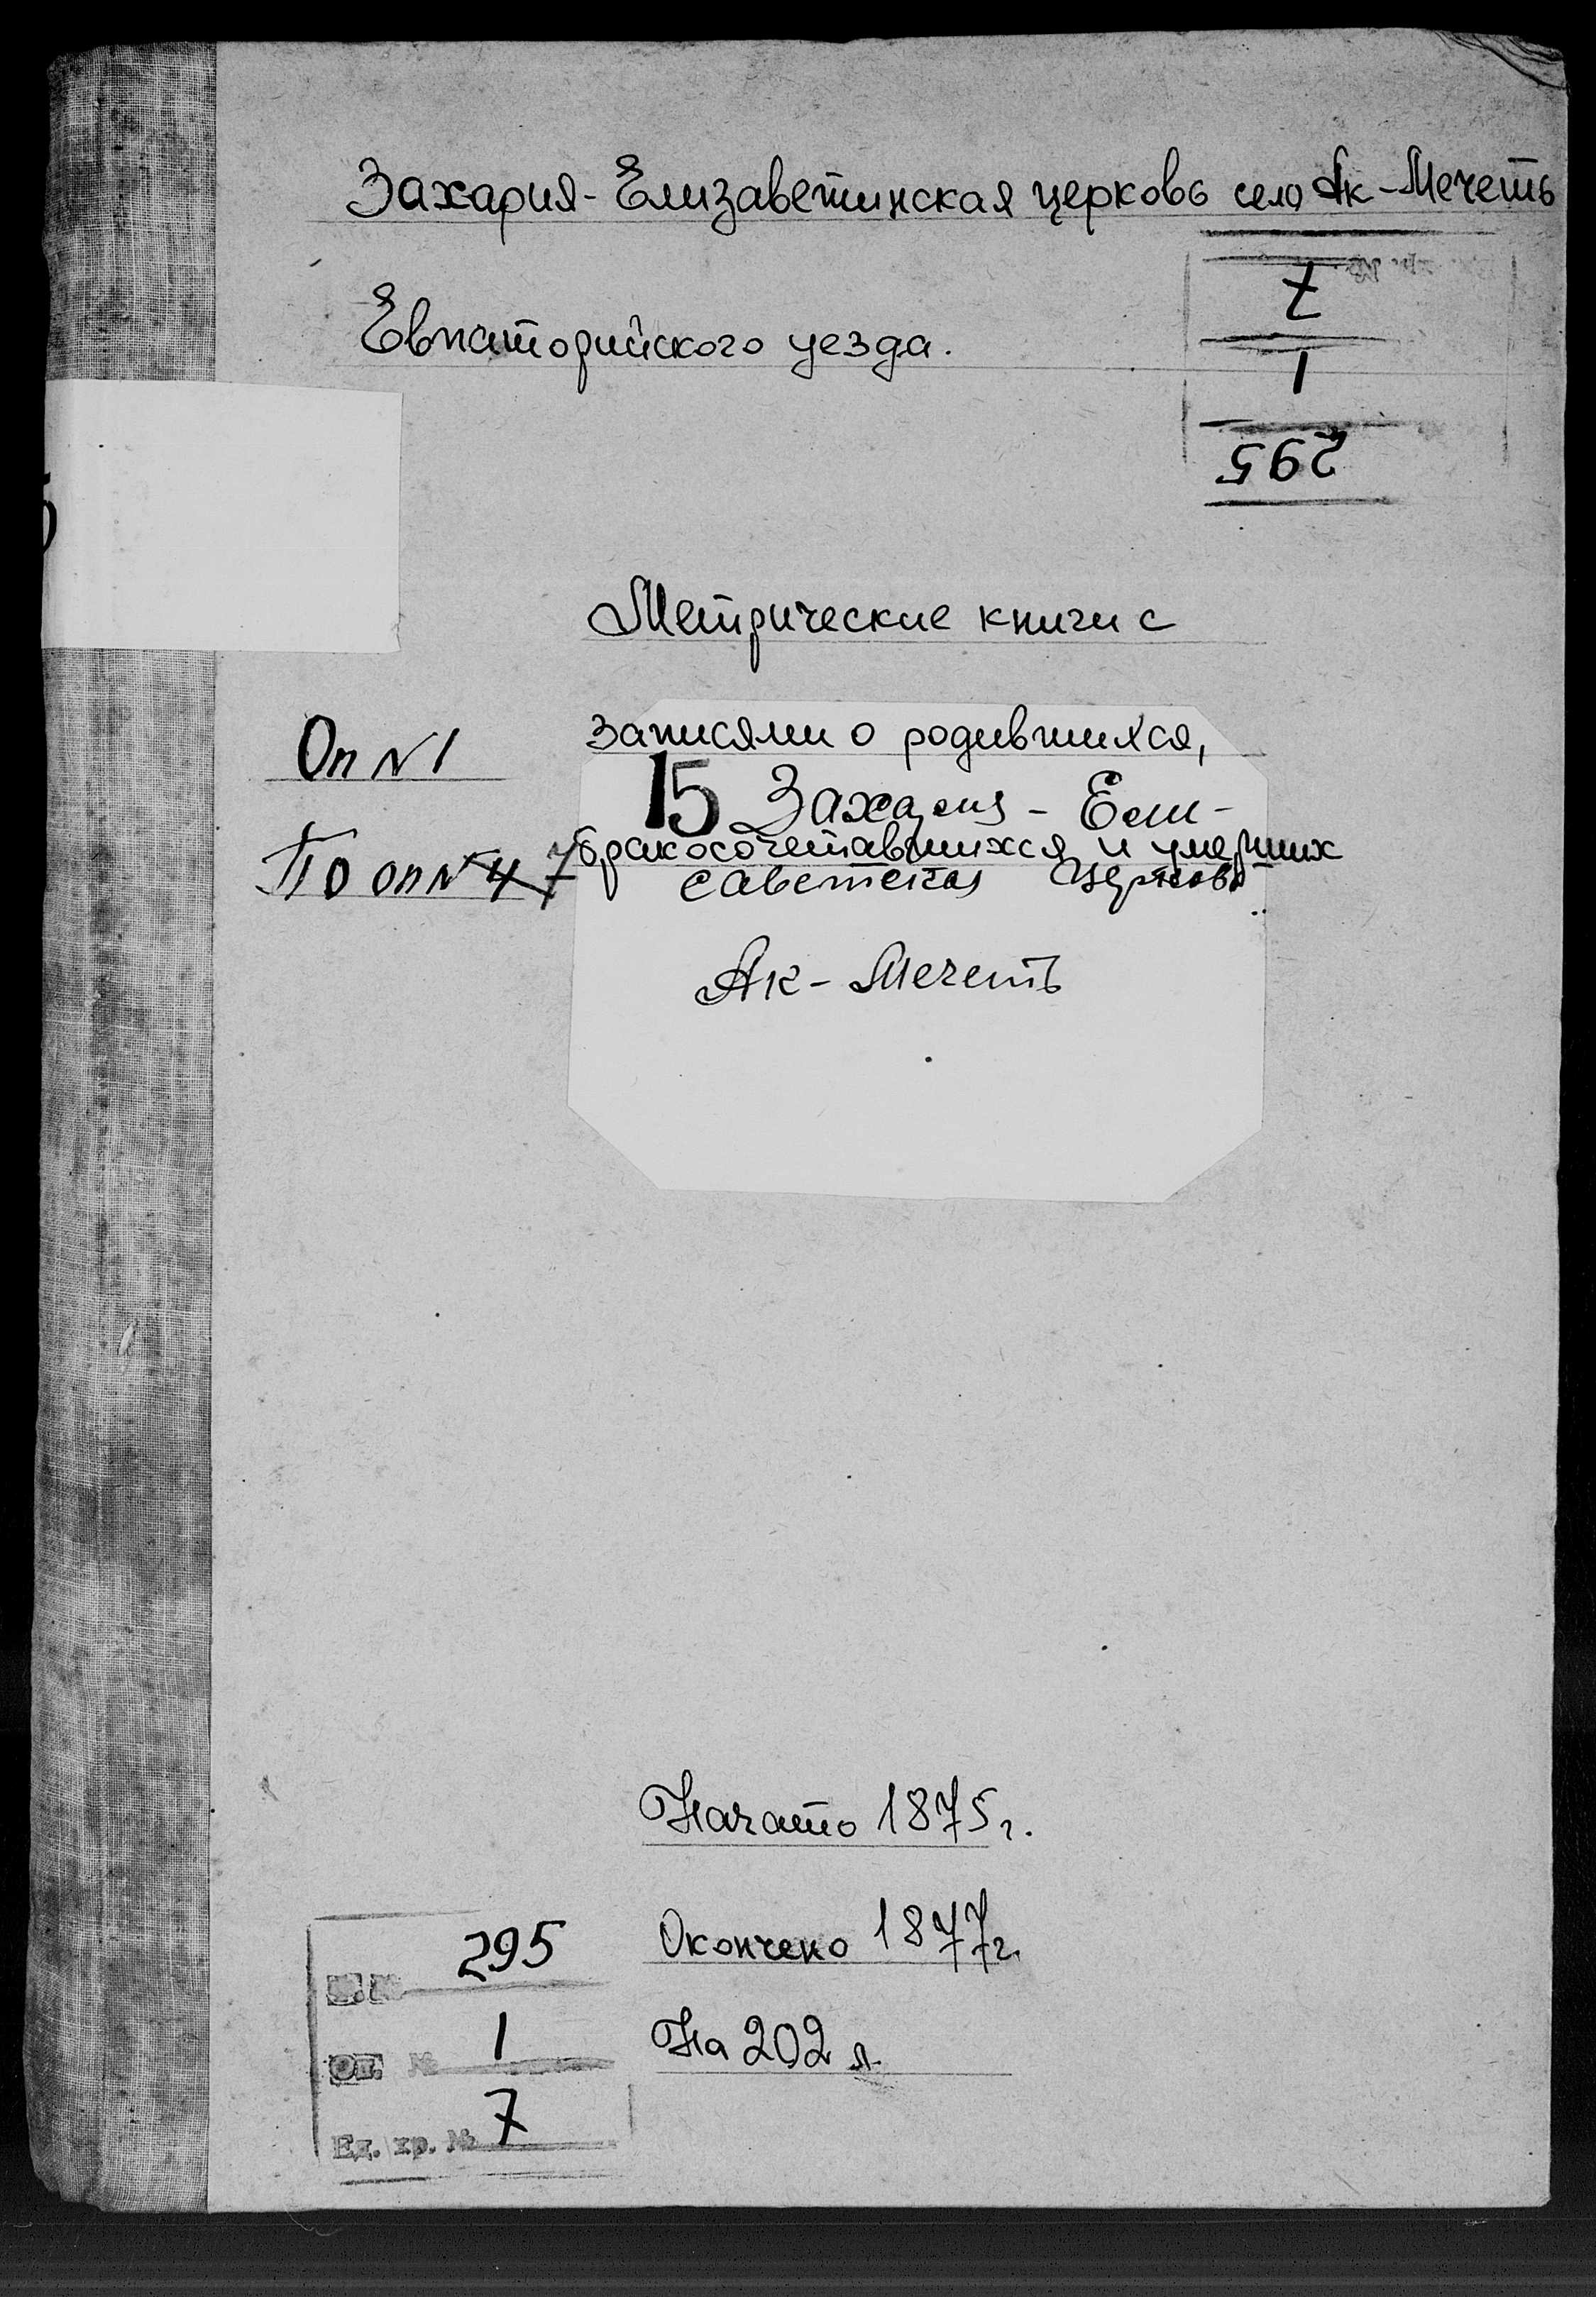 Захария-Елизаветинская церковь село Ак-Мечеть
Евпаторийского уезда.
Ед. хр. №
7
1
295
Метрические книги с
записями о родившихся,
Оп N 1
15 Захария - Ели-
бракосочетавшихся и умерших
По оп N 4 7
саветская Церковь
Ак-Мечеть
Начато 1875 г.
Окончено 1877 г.
295
Оп. № 1
На 202 л.
Ед. хр. № 7